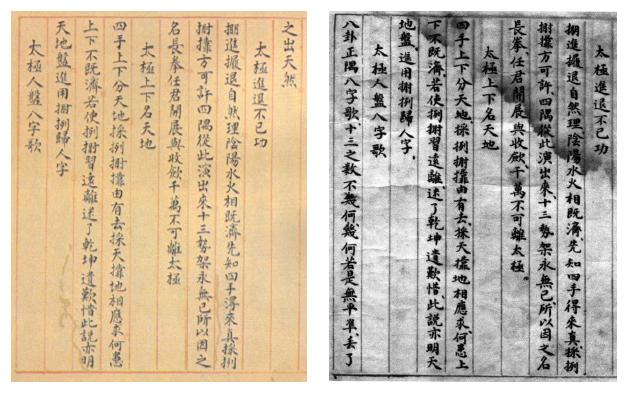 之出天然
太極進退不已功
掤進攦退自然理陰陽水火相既濟先知四手得來真採挒
捌攦方可許四隅從此演出來十三勢架永無已所以因之
名長拳任君開展與收歛千萬不可離太極
太極上下名天地
四手上下分天地採挒捌攦由有去採天攦地相應求何患
上下不既濟若使挒捌習遠離迷了乾坤遺歎惜此說亦明
天地盤進用捌挒歸人字
太極人盤八字歌
太極進退不已功
掤進攦退自然理陰陽水火相既濟先知四手得來真採挒
捌攦方可許四隅從此演出來十三勢架永無已所以因之名
長拳任君開展與收歛千萬不可離太極
太極上下名天地
四手上下分天地採挒捌攦由有去採天攦地相應求何患上
下不既濟若使挒捌習遠離迷了乾坤遺歎惜此說亦明天
地盤進用捌挒歸人字
太極人盤八字歌
八卦正隅八字歌十三之数不幾何幾何若是無平準丢了